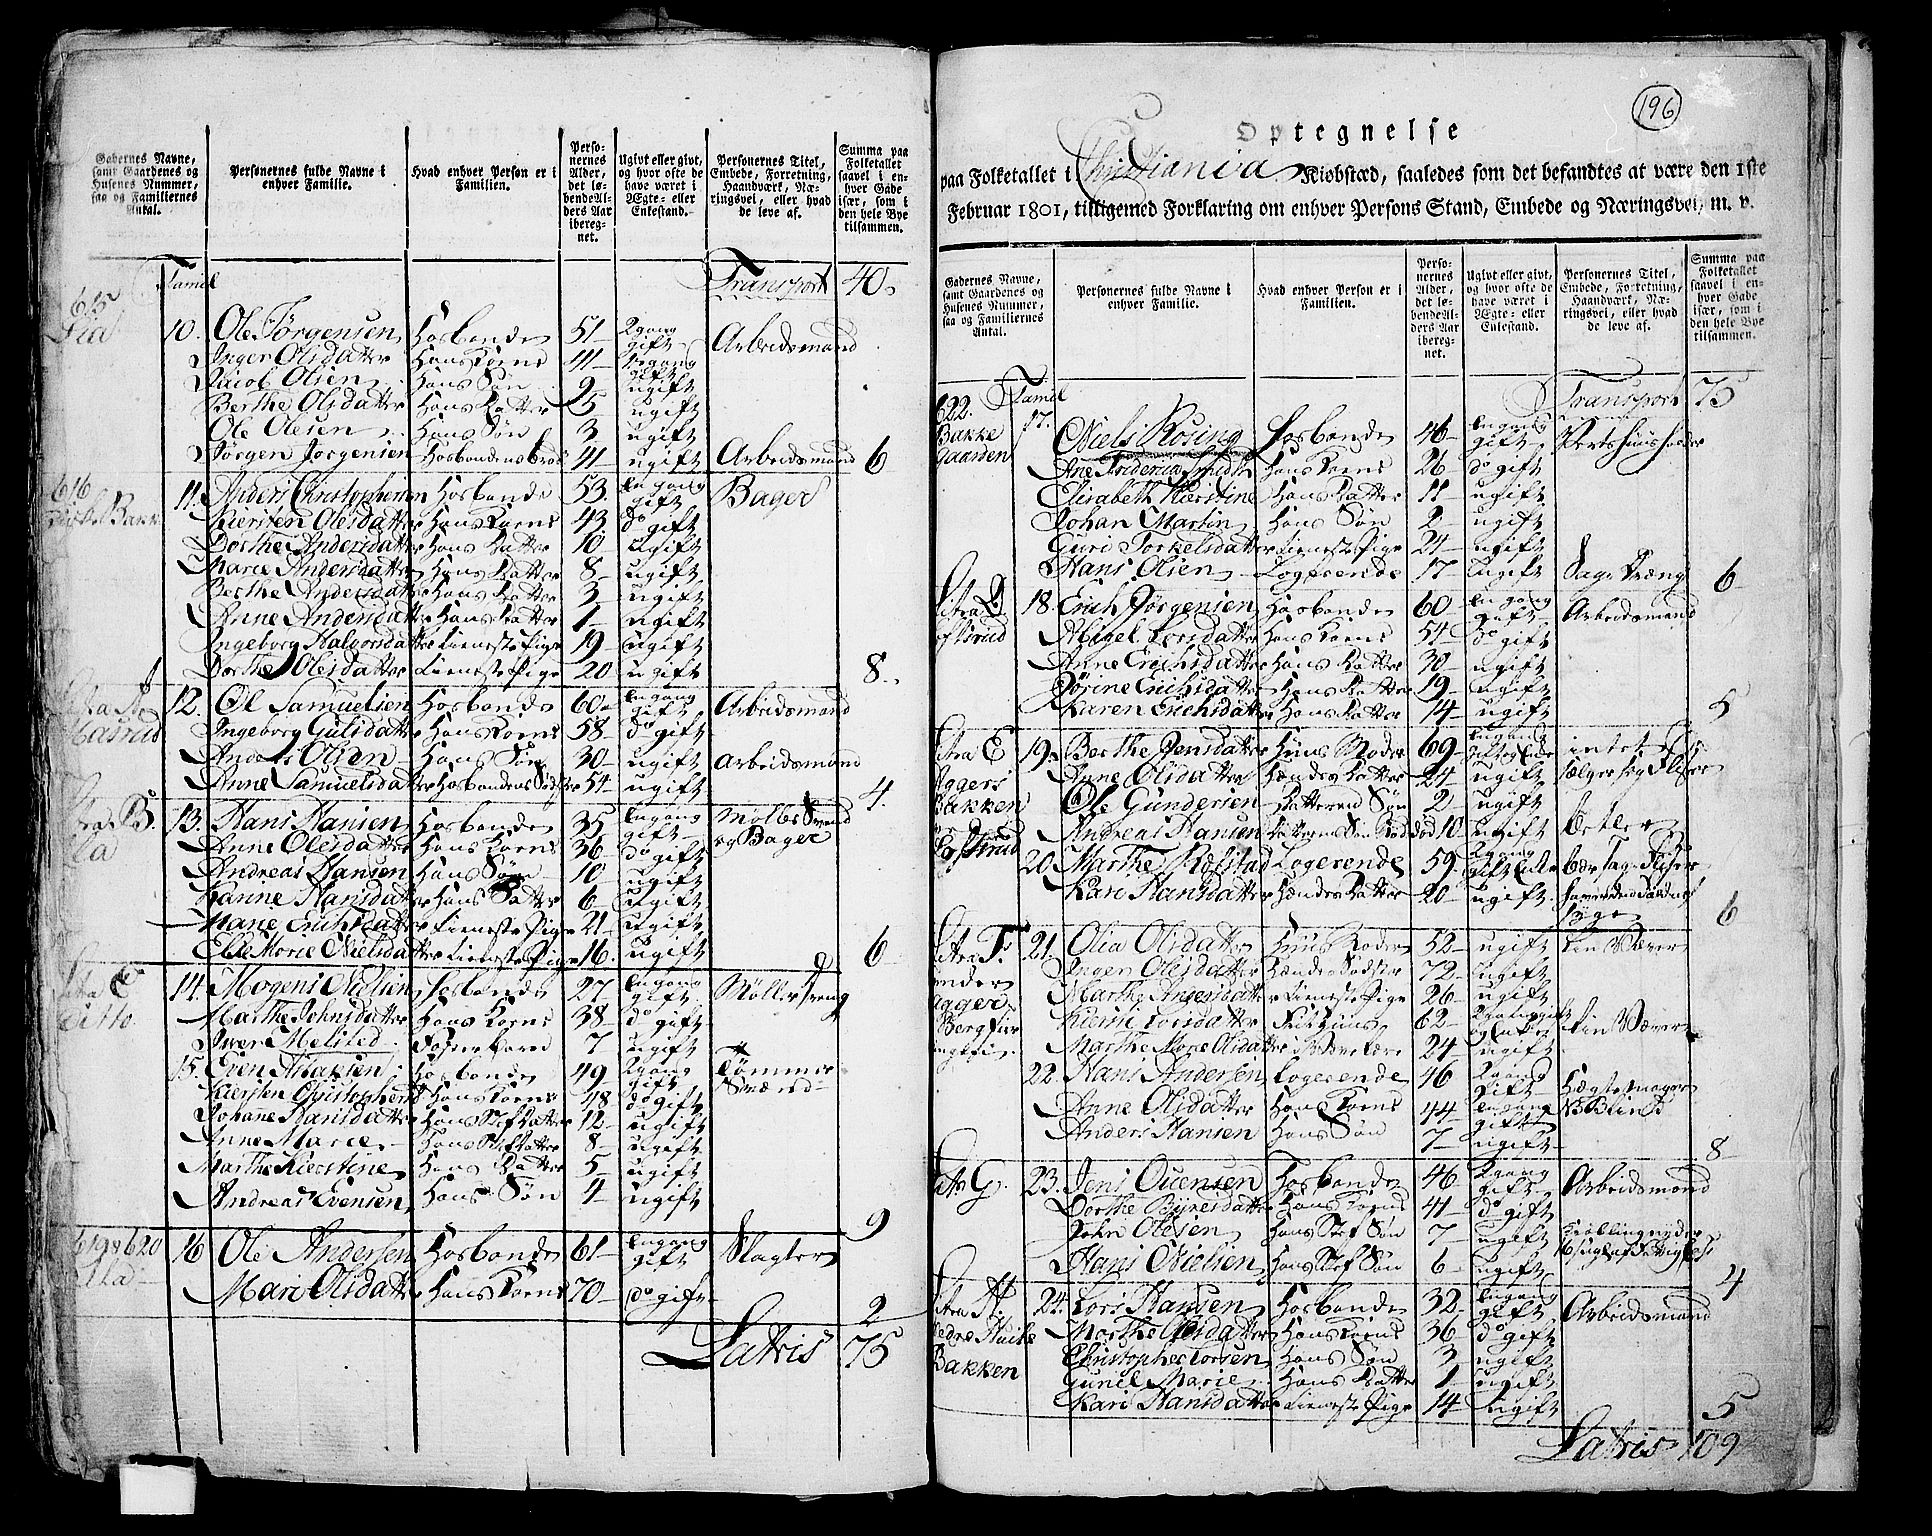 Gadernes Navne, samt Gaardenes og Husenes Nummer, saa og Familiernes Antal.
Personernes fulde Navne i enhver Familie.
Hvad enhver Person er i Familien.
Personernes Alder, det løbende Alders Aar iberegnet.
Ugivt eller givt, og hvor ofte de have været i Ægte- eller Enkestand.
Personernes Titel, Embede, Forretning, Haandværk, Næringsvei, eller hvad de leve af.
Summa paa Folketallet saavel i enhver Gade især, som i den hele Bye tilsammen.
Famil Transport 40
615
10. Ole Jørgensen Hosbonde 51 2 gang gift Arbeidsmand
Inger Olsdatter Hans Kone 41 gang gift
Jacob Olsen Hans Søn ugift
Berthe Olsdatter Hans Datter 5 ugift
Ole Olesen Hans Søn 3 ugift
Jørgen Jørgensen Hosbondens 41 ugift Arbeidsmand 6
616
11. Anders Christophersen Hosbonde 53 en gang gift Bager
Kiersten Olesdatter Hans Kone 43 do gift
Dorthe Andersdatter Hans Datter 10 ugift
Marie Andersdatter Hans Datter 8 ugift
Berthe Andersdatter Hans Datter 3 ugift
Anne Andersdatter Hans Datter 1 ugift
Ingeborg Halvorsdatter Tieneste Pige 19 ugift
Dorthe Olesdatter Tieneste Pige 20 ugift 8
12. Ole Samuelsen Hosbonde 60 en gang gift Arbeidsmand
Ingeborg Gulsdatter Hans Kone 58 do gift
Anders Olsen Hans Søn 30 ugift Arbeidsmand
Anne Samuelsdatter Hosbondens Søster 54 ugift 4
B.
13. Hans Hansen Hosbonde 35 en gang gift Mølle Svend og Bager
Anne Olesdatter Hans Kone 36 do gift
Andreas Hansen Hans Søn 10 ugift
Karine Hansdatter Hans Datter 6 ugift
Marie Erichsdatter Tieneste Pige 21 ugift
Else Marie Nielsdatter Tieneste Pige 16 ugift 6
C ditto
14. Mogens Nielsen Hosbonde 27 en gang gift Møllersvend
Marthe Johnsdatter Hans Kone 38 do gift
Iver Melsted 7 ugift
15. Even Hosbonde 49 2 gang gift Tømmer Svend
Kiersten Christophersd Hans Kone 48 do gift
Johanne Hansdatter Hans Stef Datter 12 ugift
Anne Marie Hans Stef Datter 8 ugift
Marthe Kierstine Hans Datter 5 ugift
Andreas Evensen Hans Søn 4 ugift 9
619 & 620
16 Ole Andersen Hosbonde 61 en gang gift Slagter
Mari Olsdatter Hans Kone 70 do gift 2
Latris 75
196
Optegnelse
paa Folketallet i Christiania Kiøbstæd, saaledes som det befandtes at være den 1ste
Februar 1801, tilligemed Forklaring om enhver Persons Stand, Embede og Næringsvei, m. v.
Gadernes Navne, samt Gaardenes og Husenes Nummer, saa og Familiernes Antal.
Personernes fulde Navne i enhver Familie.
Hvad enhver Person er i Familien.
Personernes Alder, det løbende Alders Aar iberegnet.
Ugivt eller givt, og hvor ofte de have været i Ægte- eller Enkestand.
Personernes Titel, Embede, Forretning, Haandværk, Næringsvei, eller hvad de leve af.
Summa paa Folketallet saavel i enhver Gade især, som i den hele Bye tilsammen.
Famil Transport 75
622. Bakke gaarden
17. Niels Rosing Hosbonde 46 en gang gift Vertshuusholder
Ane Fridericha Smidth Hans Kone 26 do gift
Elisabeth Kierstine Hans Datter 11 ugift
Johan Martin Hans Søn 2 ugift
Guri Torkelsdatter Tieneste Pige 24 ugift
Hans Olsen Logerende 17 ugift Sage Dræng 6
18. Erich Jørgensen Hosbonde 60 en gang gift Arbeidsmand
Abigel Larsdatter Hans Kone 54 do gift
Anne Erichsdatter Hans Datter 30 ugift
Sørine Erichsdatter Hans Datter 19 ugift
Karen Erichsdatter Hans Datter 14 ugift 5
E Aggers Bakken
19. Berthe Jensdatter Huus Moder 69 en gang
Anne Olsdatter Hændes Datter 24 ugift sælger
Ole Gundersen Datterens Søn 2 ugift
Andreas Hansen 10 ugift betler
20. Marthe Logerende 59
Kari Hansdatter Hændes Datter 20 ugift 6
F. under Agger Berg
21. Olia Olsdatter Huus Moder 52 ugift Væver
Inger Olesdatter Hændes Søster 72 ugift
Marthe Tieneste Pige 26 ugift
Kiersti Larsdatter 62 Væver
Marthe Marie Olsdatter 24 ugift
22. Hans Andersen Logerende 46 2 gang gift Hægtemager
Anne Olsdatter Hans Kone 44 en gang gift NB Blind
Anders Hansen Hans Søn 7 ugift 8
G.
23. Jens Ouensen Hosbonde 46 2 gang gift Arbeidsmand
Dorthe Hans Kone 41 do gift
John Olesen Hans Stef Søn 7 ugift
Hans Nielsen Hans Stef Søn 6 ugift 4
H. Bakken
24. Lars Hansen Hosbonde 32 en gang gift Arbeidsmand
Marthe Olsdatter Hans Kone 36 do gift
Christopher Larsen Hans Søn 3 ugift
Gunil Marie Hans Datter 1 ugift
Kari Hansdatter Tieneste Pige 14 ugift 5
Latris 109